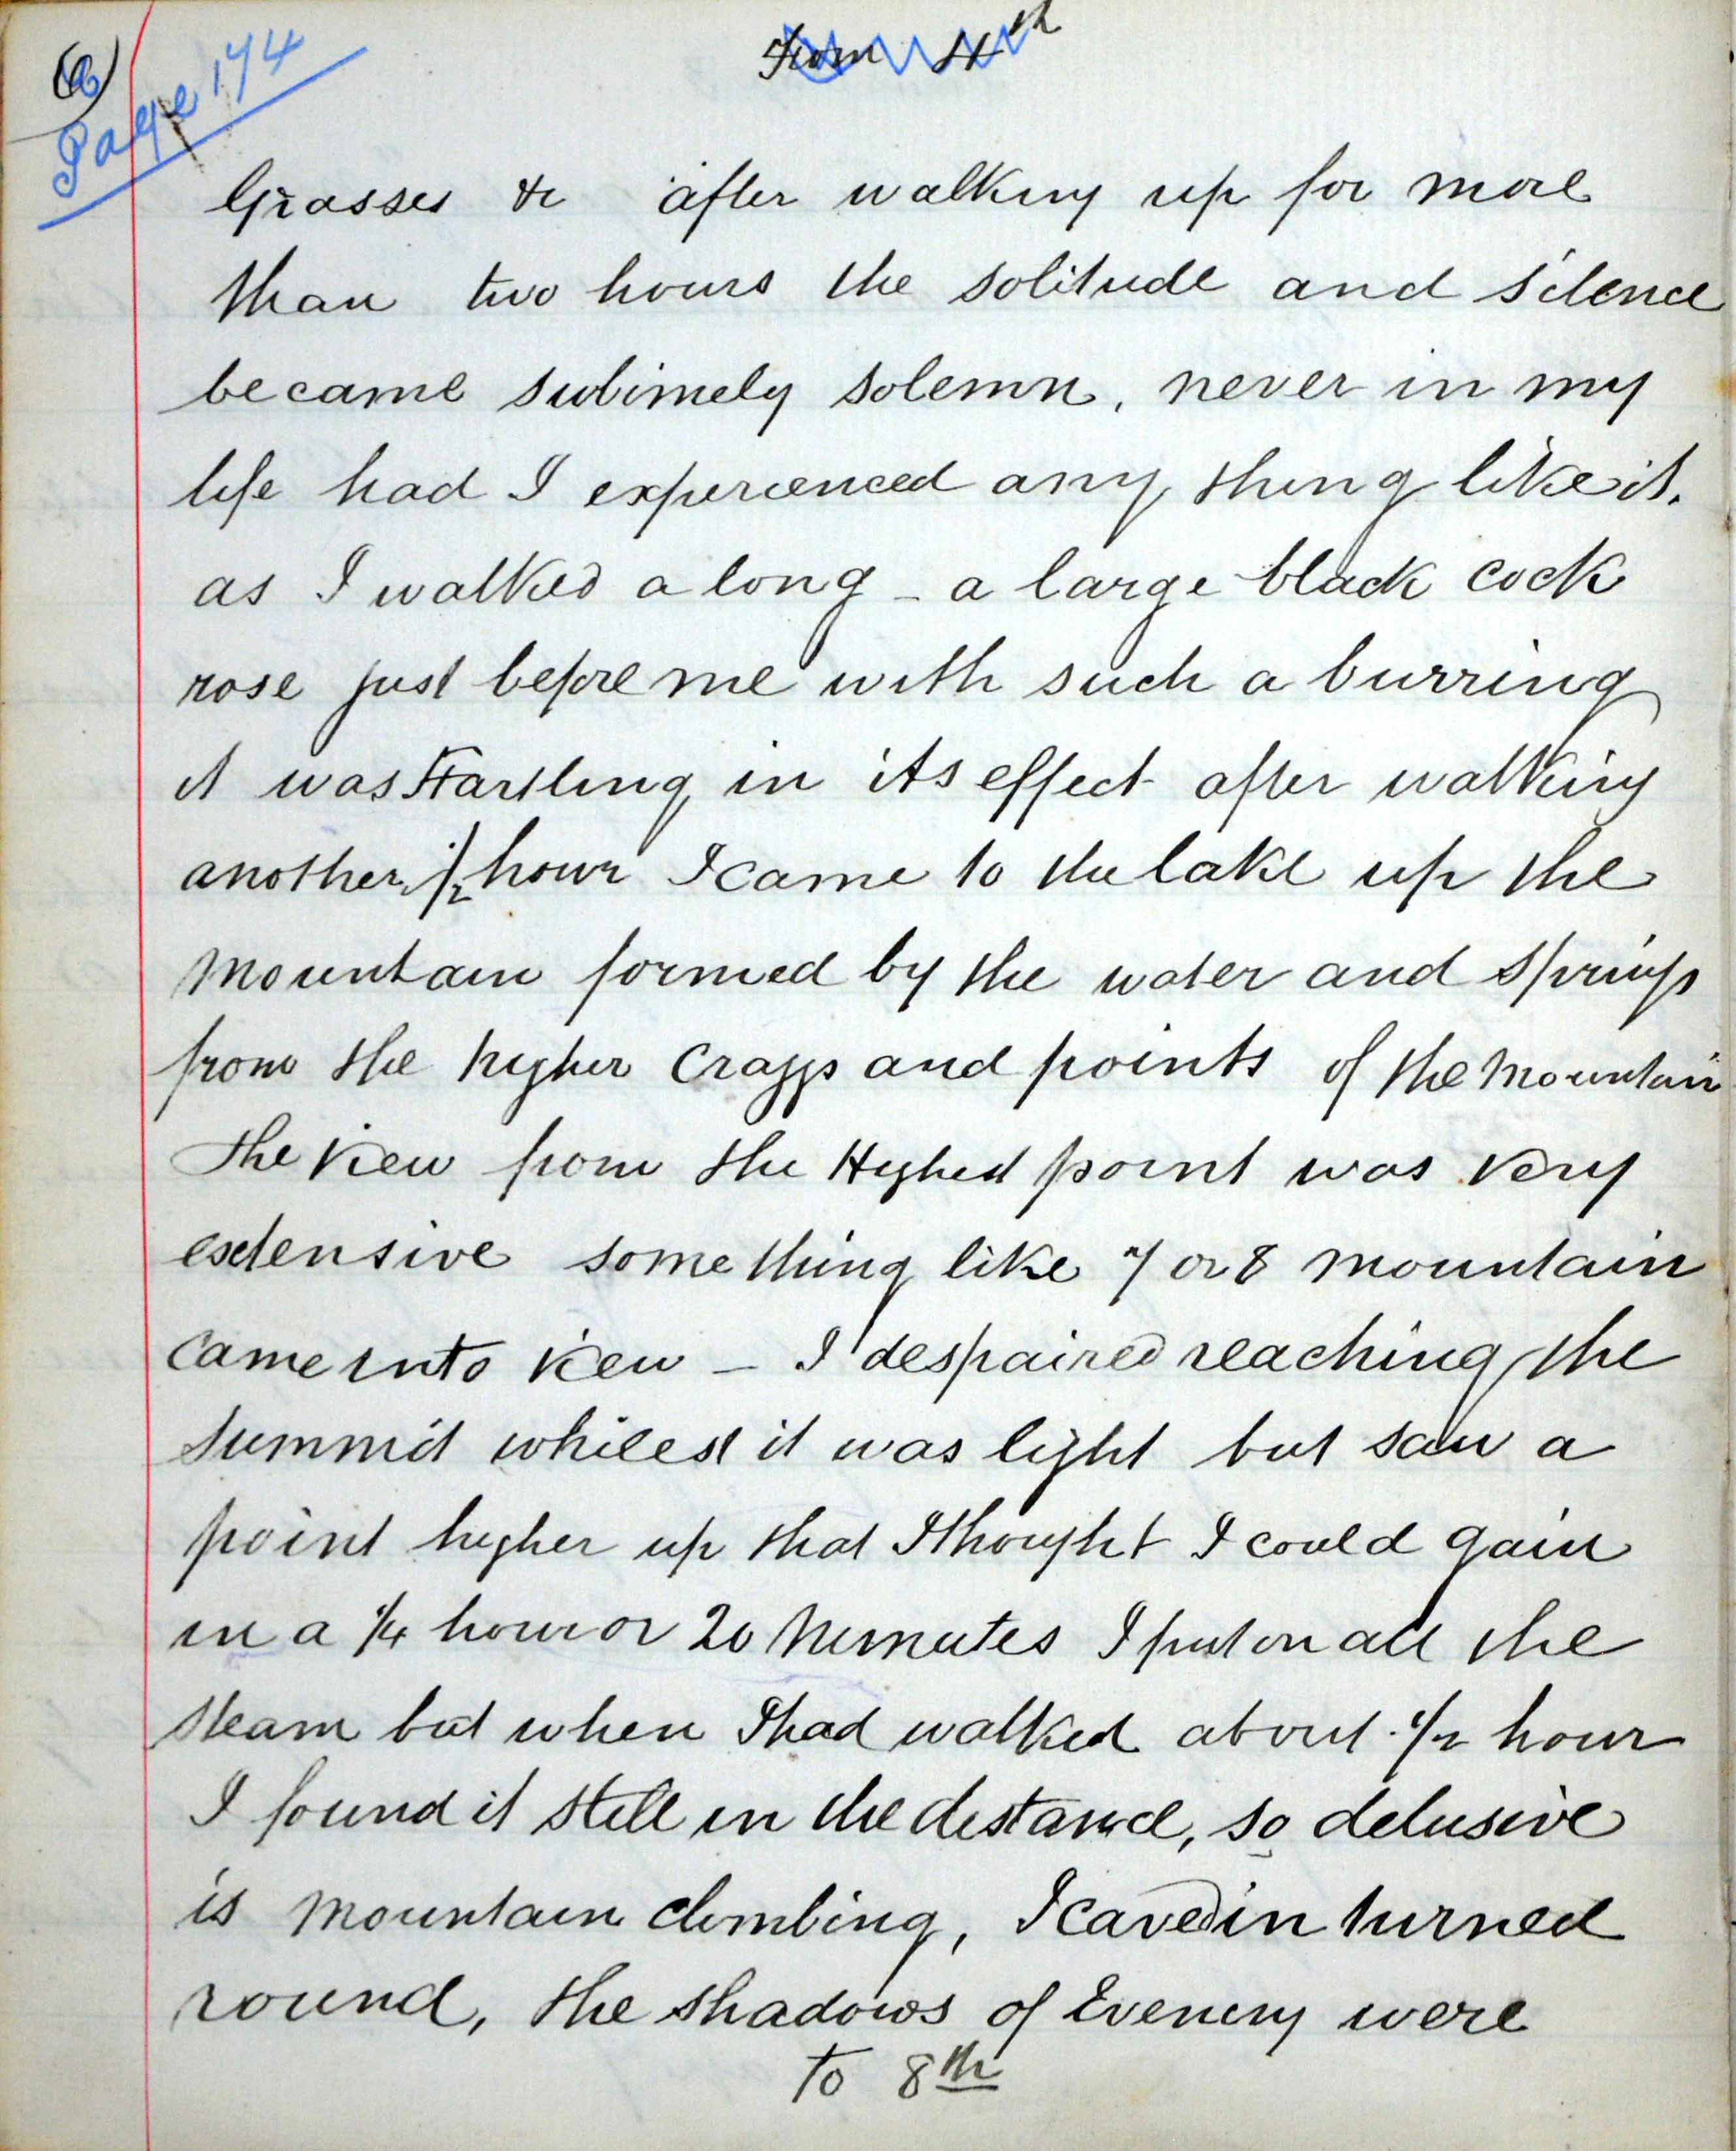 6)
Page 174
From 4th
Grasses &c after walking up for more
than two hours the solitude and silence
became sublimely solemn, never in my
life had I experienced any thing like it.
as I walked along - a large black cock
rose just before me with such a burring
it was startling in its effect after walking
another 1/2 hour I came to the lake up the
mountain formed by the water and springs
from the higher Craggs and points of the mountain
The view from the Highest point was very
extensive something like 7 or 8 mountain
came into view - I despaired reaching the
summit whilest it was light but saw a
point higher up that I thought I could gain
in a 1/4 hour or 20 minutes I put on all the
steam but when I had walked about 1/2 hour
I found it still in the distance, so delusive
is mountain climbing, I caved in turned
round, the shadows of Evening were
to 8th